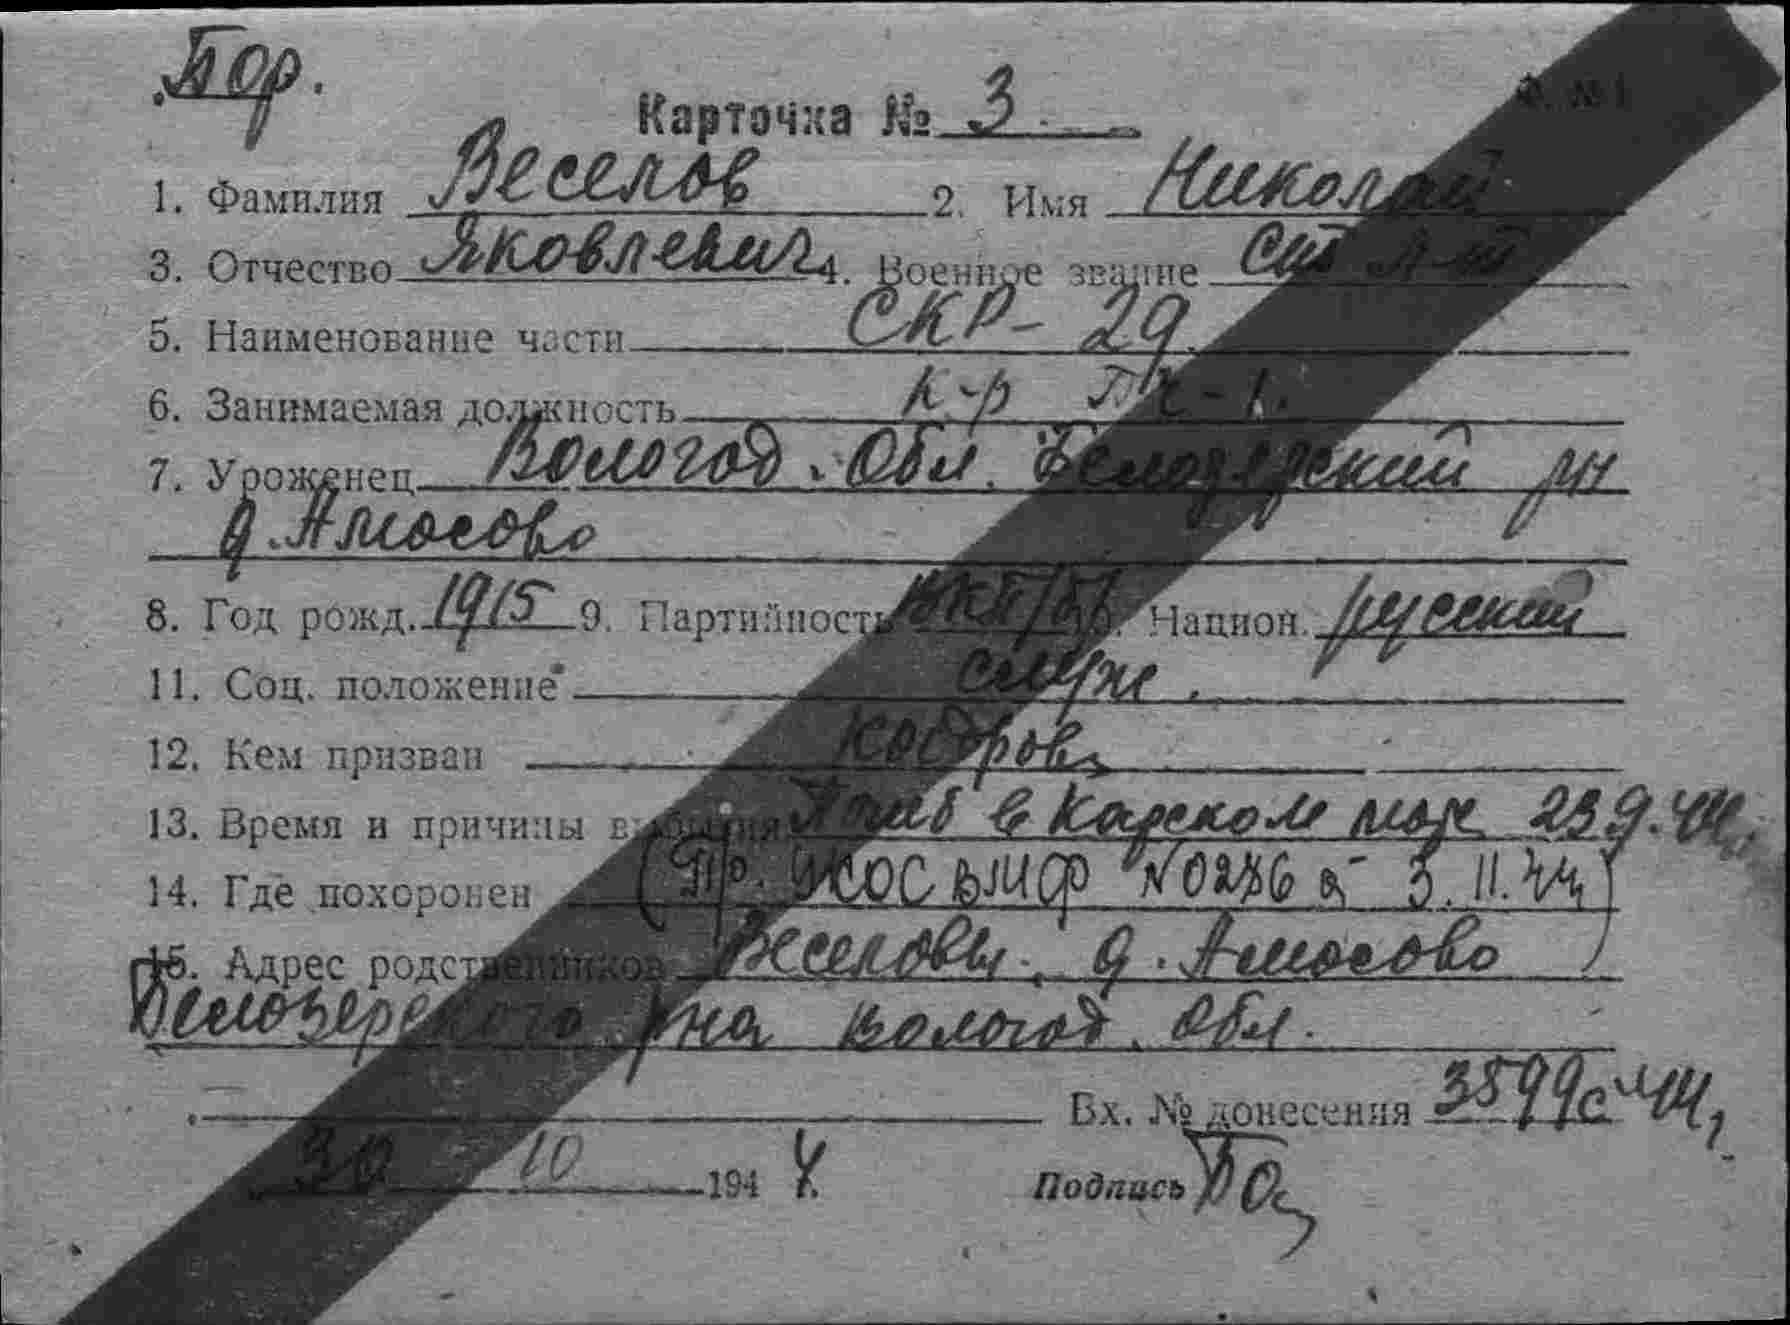 Бор.
Карточка № 3
Ф. № 1
1. Фамилия Веселов 2. Имя Николай
3. Отчество Яковлевич 4. Военное звание ст. л-т
5. Наименование части СКР-29
6. Занимаемая должность к-р БЧ-1.
7. Уроженец Вологод. Обл. Белозерский рн
д. Амосово
8. Год рожд. 1915 9. Партийность ВКП/б/ Национ. русский
11. Соц. положение служ.
12. Кем призван кадровы
13. Время и причины выбытия Погиб в Карском море 23 9.44.
14. Где похоронен (Пр. УКОС ВМФ № 0286 от 3.11.44)
15. Адрес родственников Веселовы. д. Амосово
Белозерского рна Вологод. Обл.
Вх. № донесения 3599с 44
30 10 1944
Подпись